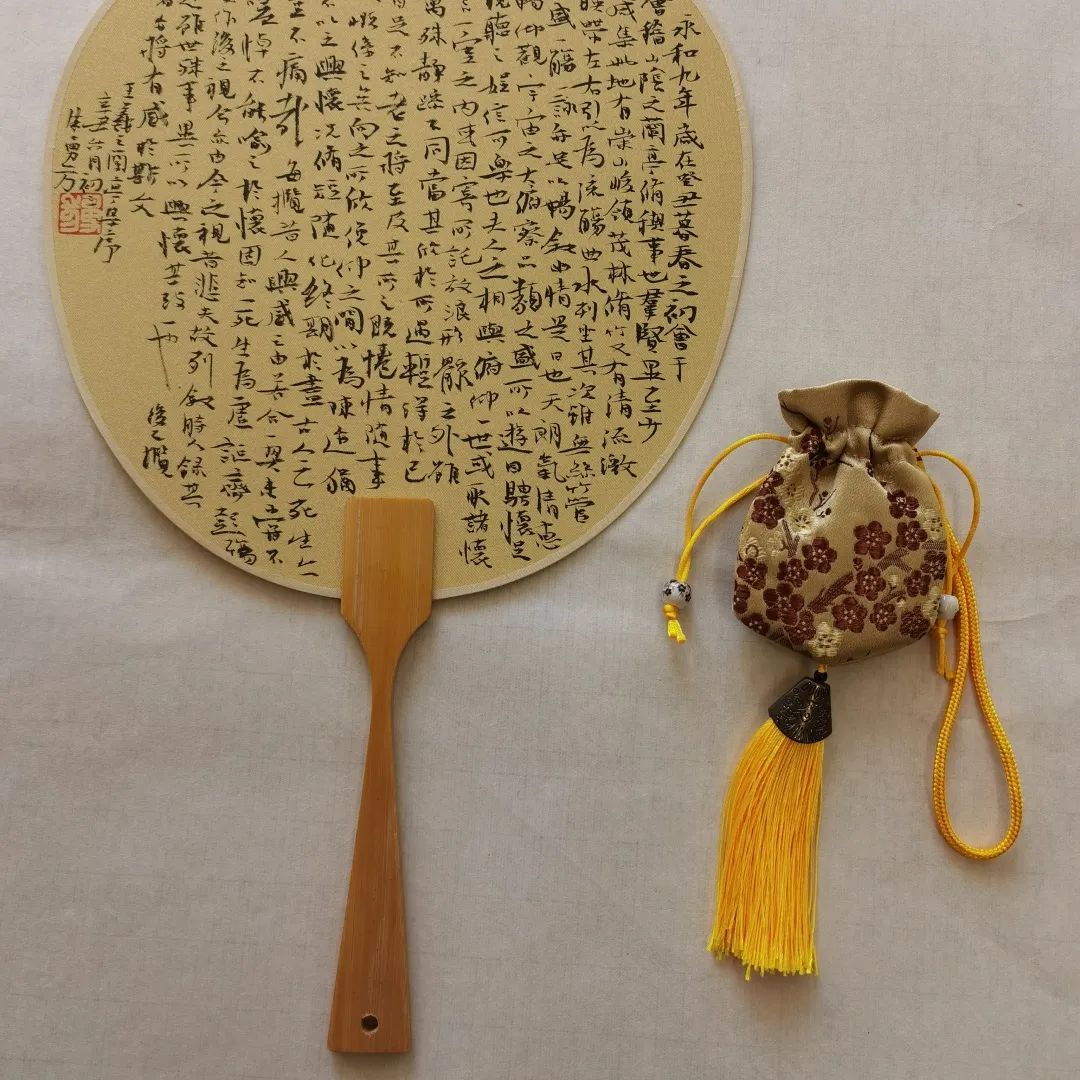 永和九年歲在癸丑暮春之初會于
會稽山陰之蘭亭脩稧事也羣賢畢至少
咸集此地有崇山峻領茂林脩竹又有清流激
暎帶左右引以為流觴曲水列坐其次雖無絲竹管
盛一觴一詠亦足以暢敘幽情是日也天朗氣清惠
暢仰觀宇宙之大俯察品類之盛所以遊目騁懷足
視聽之娛信可樂也夫人之相與俯仰一世或取諸懷
一室之內或因寄所託放浪形骸之外雖
萬殊靜躁不同當其欣於所遇輕得於己
足不知老之將至及其所之既惓情隨事
慨係之矣向之所欣俛仰之間以為陳迹猶
不以之興懷況脩短隨化終期於盡古人云死生亦
不痛哉每攬昔人興感之由若合一契未嘗不
嗟悼不能喻之於懷固知一死生為虛誕齊彭殤
作後之視今亦由今之視昔悲夫故列敘時人錄其
述雖世殊事異所以興懷其致一也後之攬
者亦將有感於斯文
王羲之蘭亭集序
辛丑六月初
朱勇方